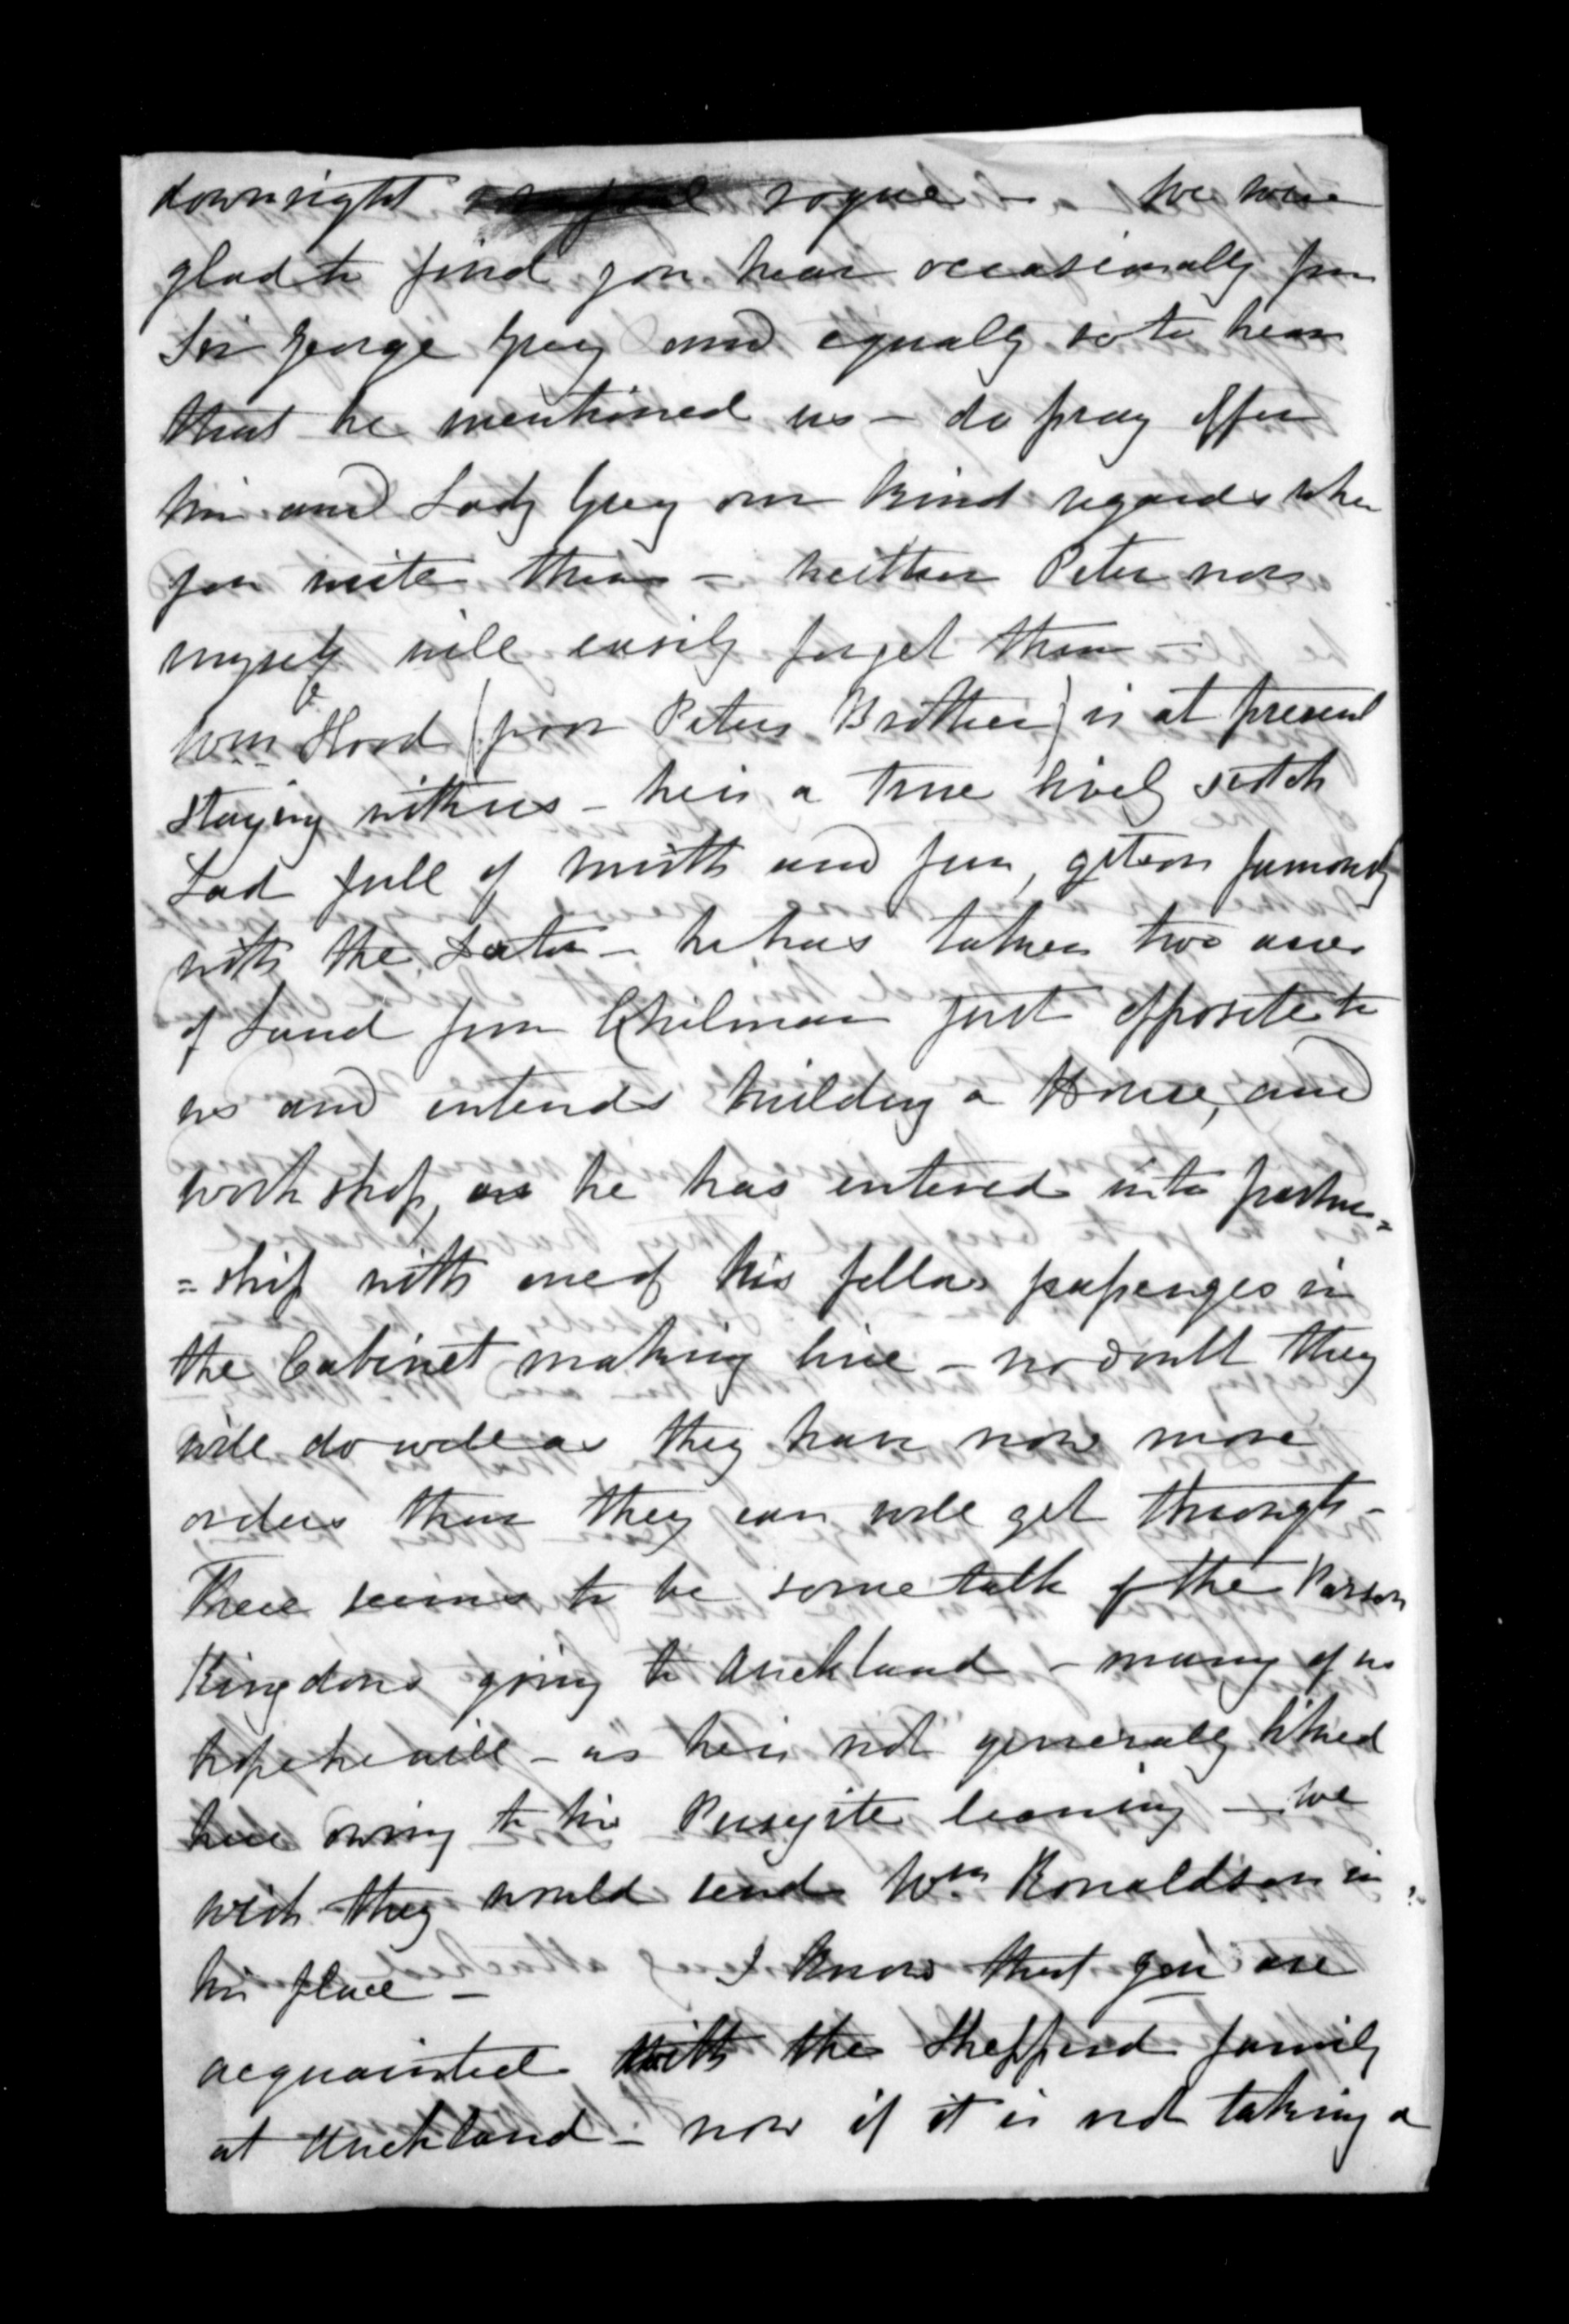 downright rogue - We were
glad to find you hear occasionally from
Sir George Grey and equally so to hear
that he mentioned us - do pray offer
him and Lady Grey our kind regards when
you write them - neither Peter nor
myself will easily forget them -
Wm Hood (poor Peters Brother) is at present
staying with us - he is a true lively scotch
Lad full of mirth and fun, gets on famously
with the - he has taken two acres
of Land from Chilman just opposite to
us and intends building a House, and
work shop, as he has entered into partner=
=ship with one of his fellow passengers in
the Cabinet making line - no doubt they
will do well as they have now more
orders than they can well get through -
There seems to be some talk of the Parson
Kingdons going to Auckland - many of us
hope he will - as he is not generally liked
here owing to his Puseyite leaning - we
wish they would send Wm Ronaldson in
his place - I know that you are
acquainted with the Shepherd family
at Auckland - now if it is not taking a